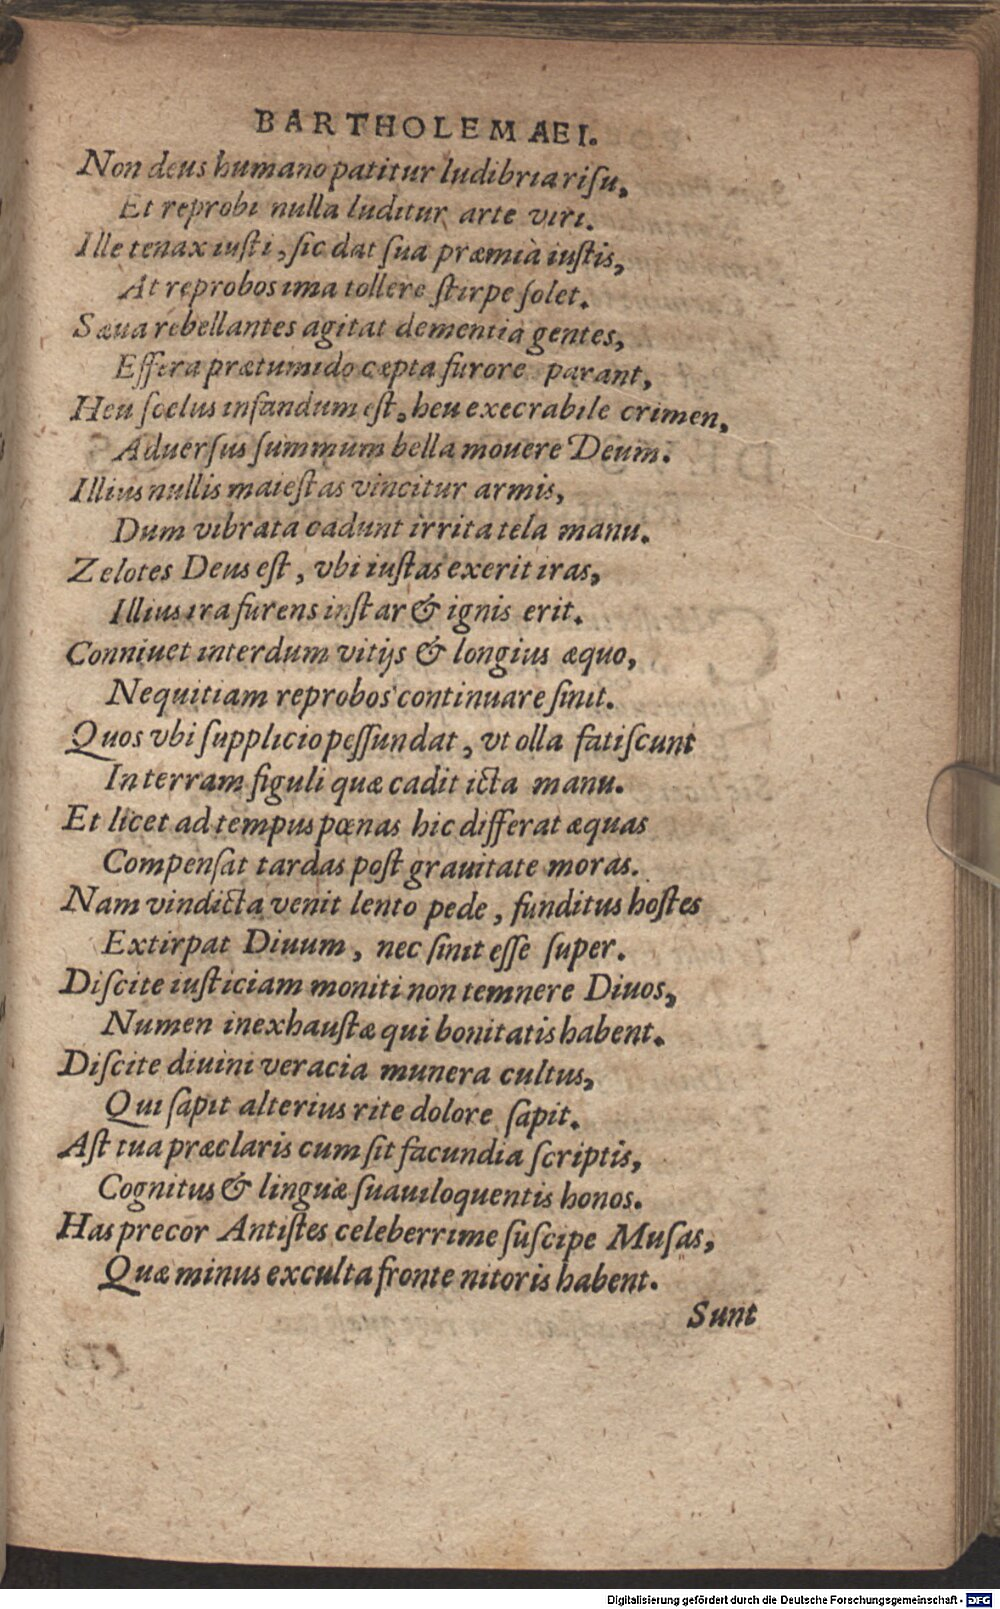 BARTHOLEMAEI.
Non deus humano patitur ludibria risu,
Et reprobi nulla luditur arte viri.
Ille tenax iusti, sic dat sua præmià iustis,
At reprobos ima tollere stirpe solet.
Sæua rebellantes agitat dementia gentes,
Effera prætumido cæpta furore parant,
Heu scelus infandum est, heu execrabile crimen,
Aduersus summum bella mouere Deum.
Illius nullis maiestas vincitur armis,
Dum vibrata cadunt irrita tela manu.
Zelotes Deus est, vbi iustas exerit iras,
Illius ira furens instar & ignis erit.
Conniuet interdum vitijs & longius æquo,
Nequitiam reprobos continuare sinit.
Quos vbi supplicio pessundat, vt olla fatiscunt
In terram figuli quæ cadit icta manu.
Et licet ad tempus pœnas hic differat æquas
Compensat tardas post grauitate moras.
Nam vindicta venit lento pede, funditus hostes
Extirpat Diuum, nec sinit esse super.
Discite iusticiam moniti non temnere Diuos,
Numen inexhaustæ qui bonitatis habent.
Discite diuini veracia munera cultus,
Qui sapit alterius rite dolore sapit.
Ast tua præclaris cum sit facundia scriptis,
Cognitus & linguæ suauiloquentis honos.
Has precor Antistes celeberrime suscipe Musas,
Quæ minus exculta fronte nitoris habent.
Sunt
Digitalisierung gefördert durch die Deutsche Forschungsgemeinschaft - DFG